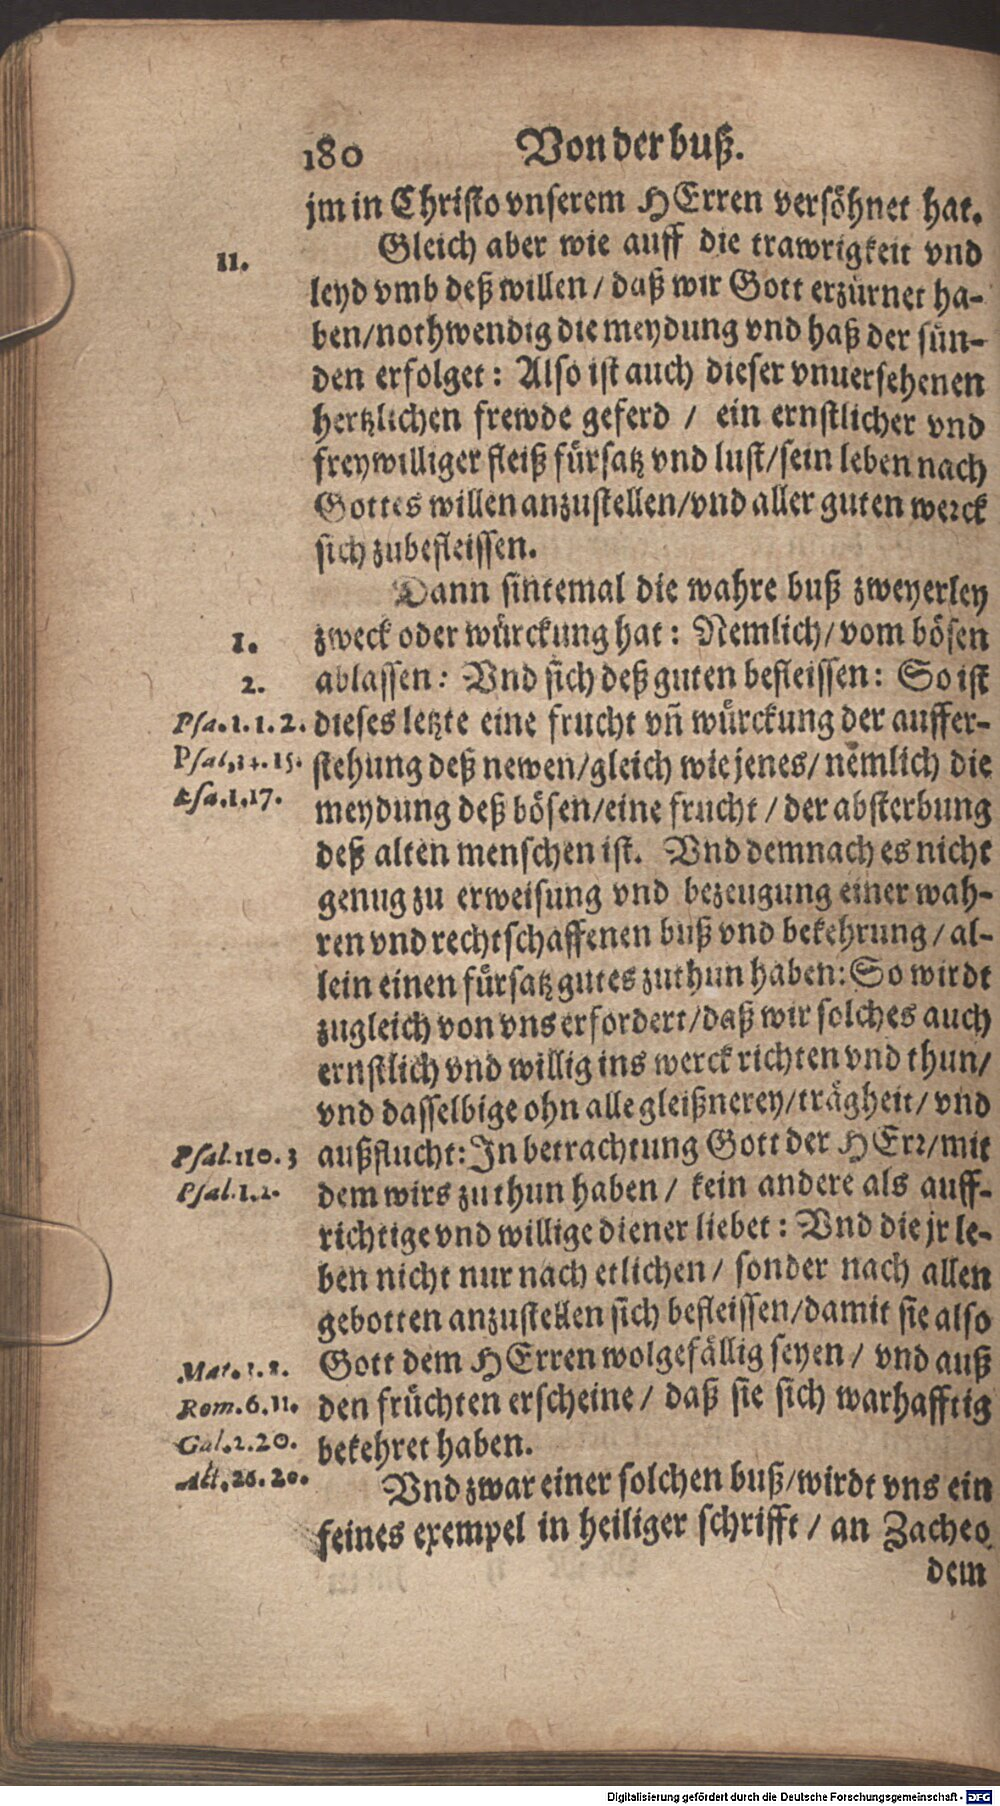 180 Von der buß.
jm in Christo vnserem HErren versöhnet hat.
11.
Gleich aber wie auff die trawrigkeit vnd
leyd vmb deß willen / daß wir Gott erzürnet ha-
ben/nothwendig die meydung vnd haß der sün-
den erfolget: Also ist auch dieser vnuersehenen
hertzlichen frewde geferd / ein ernstlicher vnd
freywilliger fleiß fürsatz vnd lust/sein leben nach
Gottes willen anzustellen/vnd aller guten werck
sich zubefleissen.
Dann sintemal die wahre buß zweyerley
1.
zweck oder würckung hat: Nemlich/vom bösen
2.
ablassen: Vnd sich deß guten befleissen: So ist
Psa.1.1.2.
dieses letzte eine frucht vñ würckung der auffer-
Psal.34.15.
stehung deß newen/gleich wie jenes/nemlich die
Esa.1.17.
meydung deß bösen/eine frucht / der absterbung
deß alten menschen ist. Vnd demnach es nicht
genug zu erweisung vnd bezeugung einer wah-
ren vnd rechtschaffenen buß vnd bekehrung/al-
lein einen fürsatz gutes zuthun haben: So wirdt
zugleich von vns erfordert/daß wir solches auch
ernstlich vnd willig ins werck richten vnd thun/
vnd dasselbige ohn alle gleißnerey/trägheit/vnd
Psal.110.3
außflucht: In betrachtung Gott der HErr/mit
Psal.1.2.
dem wirs zuthun haben / kein andere als auff-
richtige vnd willige diener liebet: Vnd die jr le-
ben nicht nur nach etlichen / sonder nach allen
gebotten anzustellen sich befleissen/damit sie also
Mat.3.8.
Gott dem HErren wolgefällig seyen / vnd auß
Rom.6.11.
den früchten erscheine / daß sie sich warhafftig
Gal.2.20.
bekehret haben.
Act.26.20.
Vnd zwar einer solchen buß/wirdt vns ein
feines exempel in heiliger schrifft / an Zacheo
dem
Digitalisierung gefördert durch die Deutsche Forschungsgemeinschaft - DFG